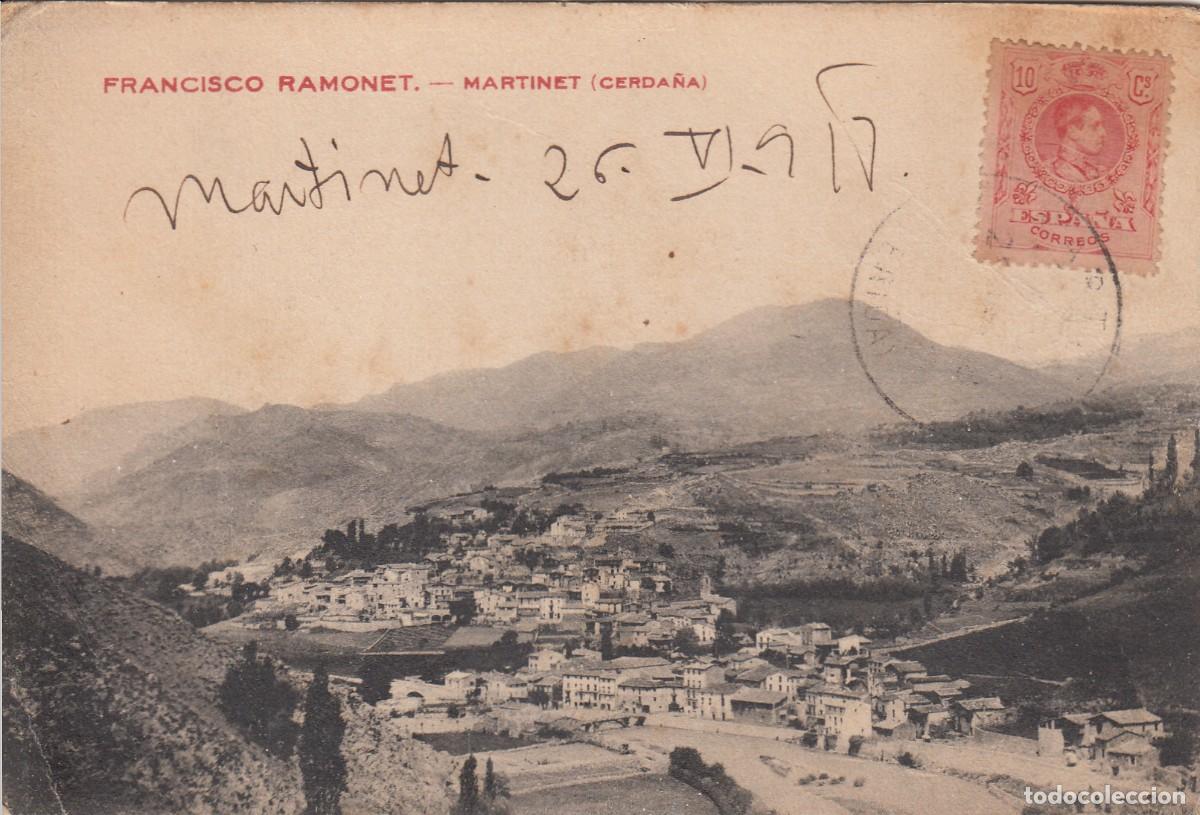 FRANCISCO RAMONET. — MARTINET (CERDAÑA)
10 Cs
Martinet. 26. VI-915.
ESPAÑA
CORREOS
todocoleccion